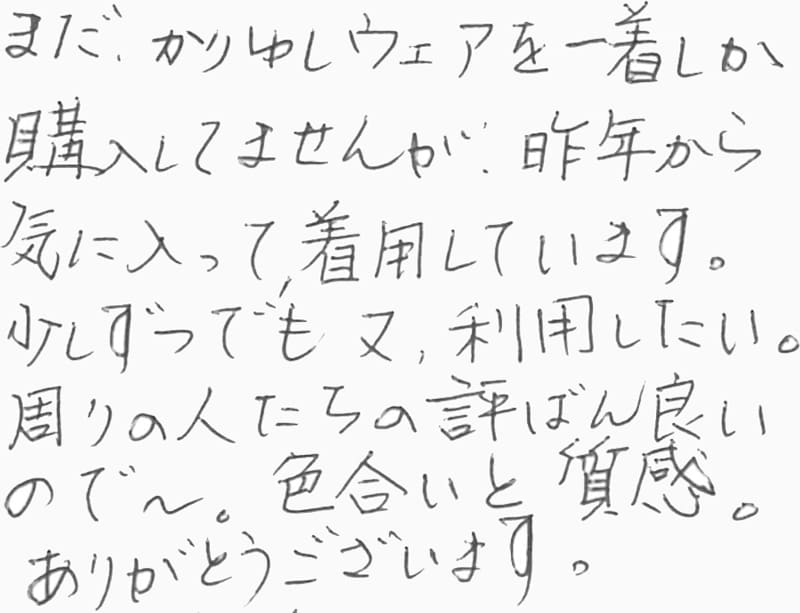 まだ、かりゆしウェアを一着しか
購入してませんが、昨年から
気に入って、着用しています。
少しずつでも又、利用したい。
周りの人たちの評ばん良い
ので〜。色合いと質感。
ありがとうございます。